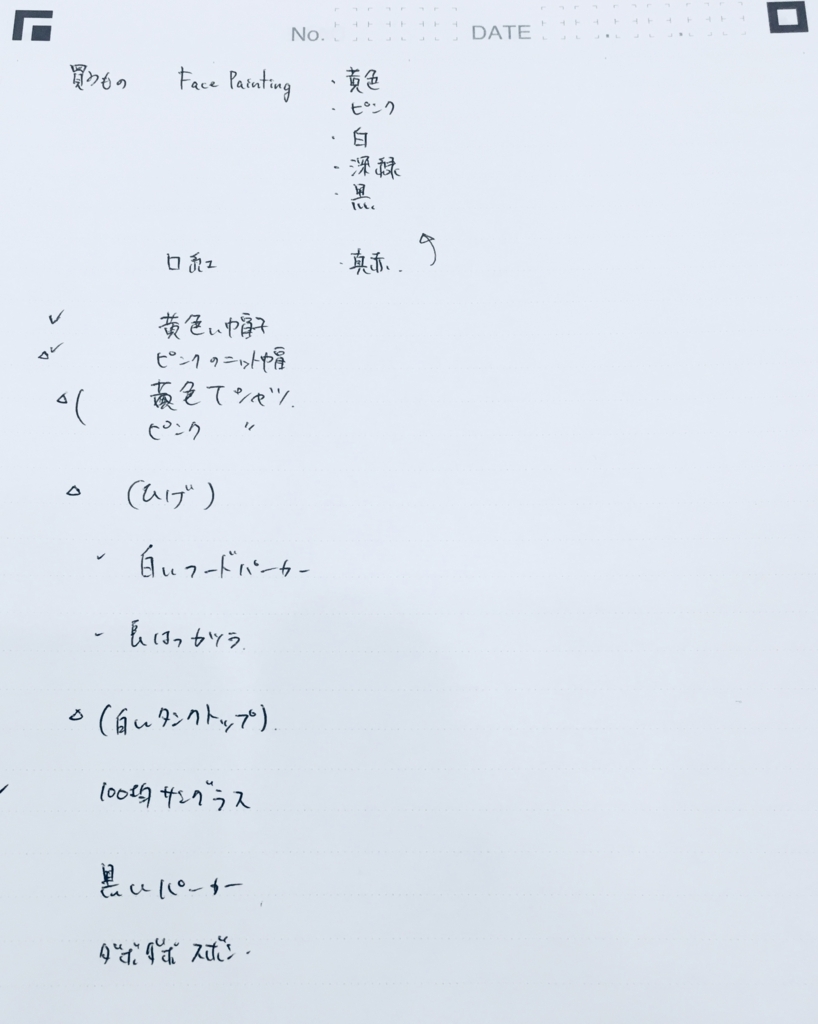 No. DATE
買うもの Face Painting ・黄色
・ピンク
・白
・深緑
・黒
口紅 ・真赤.
✓ 黄色い帽子
△✓ ピンクのニット帽
△( 黄色Tシャツ.
ピンク 〃
△ (ひげ)
✓ 白いフードパーカー
- 長はつカツラ
△ (白いタンクトップ).
✓ 100均サングラス
黒いパーカー
ダボダボズボン.